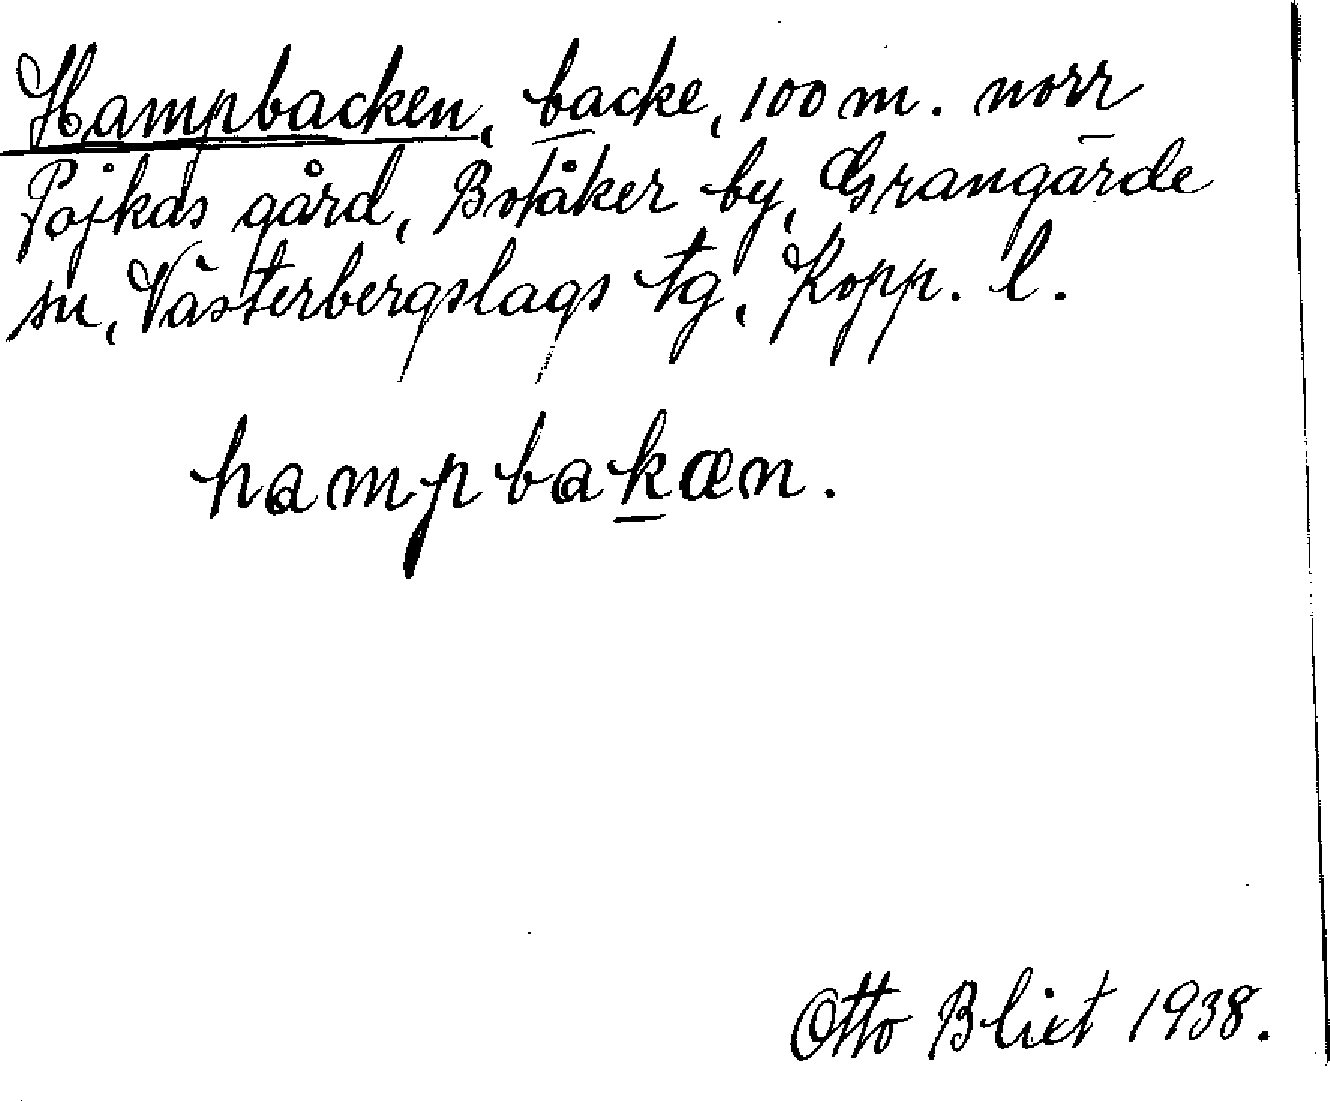 Hampbacken, backe, 100 m. norr
Pojkas gård, Botåker by, Grangärde
sn, Västerbergslags tg, Kopp. l.
hampbakæn.
Otto Blixt 1938.